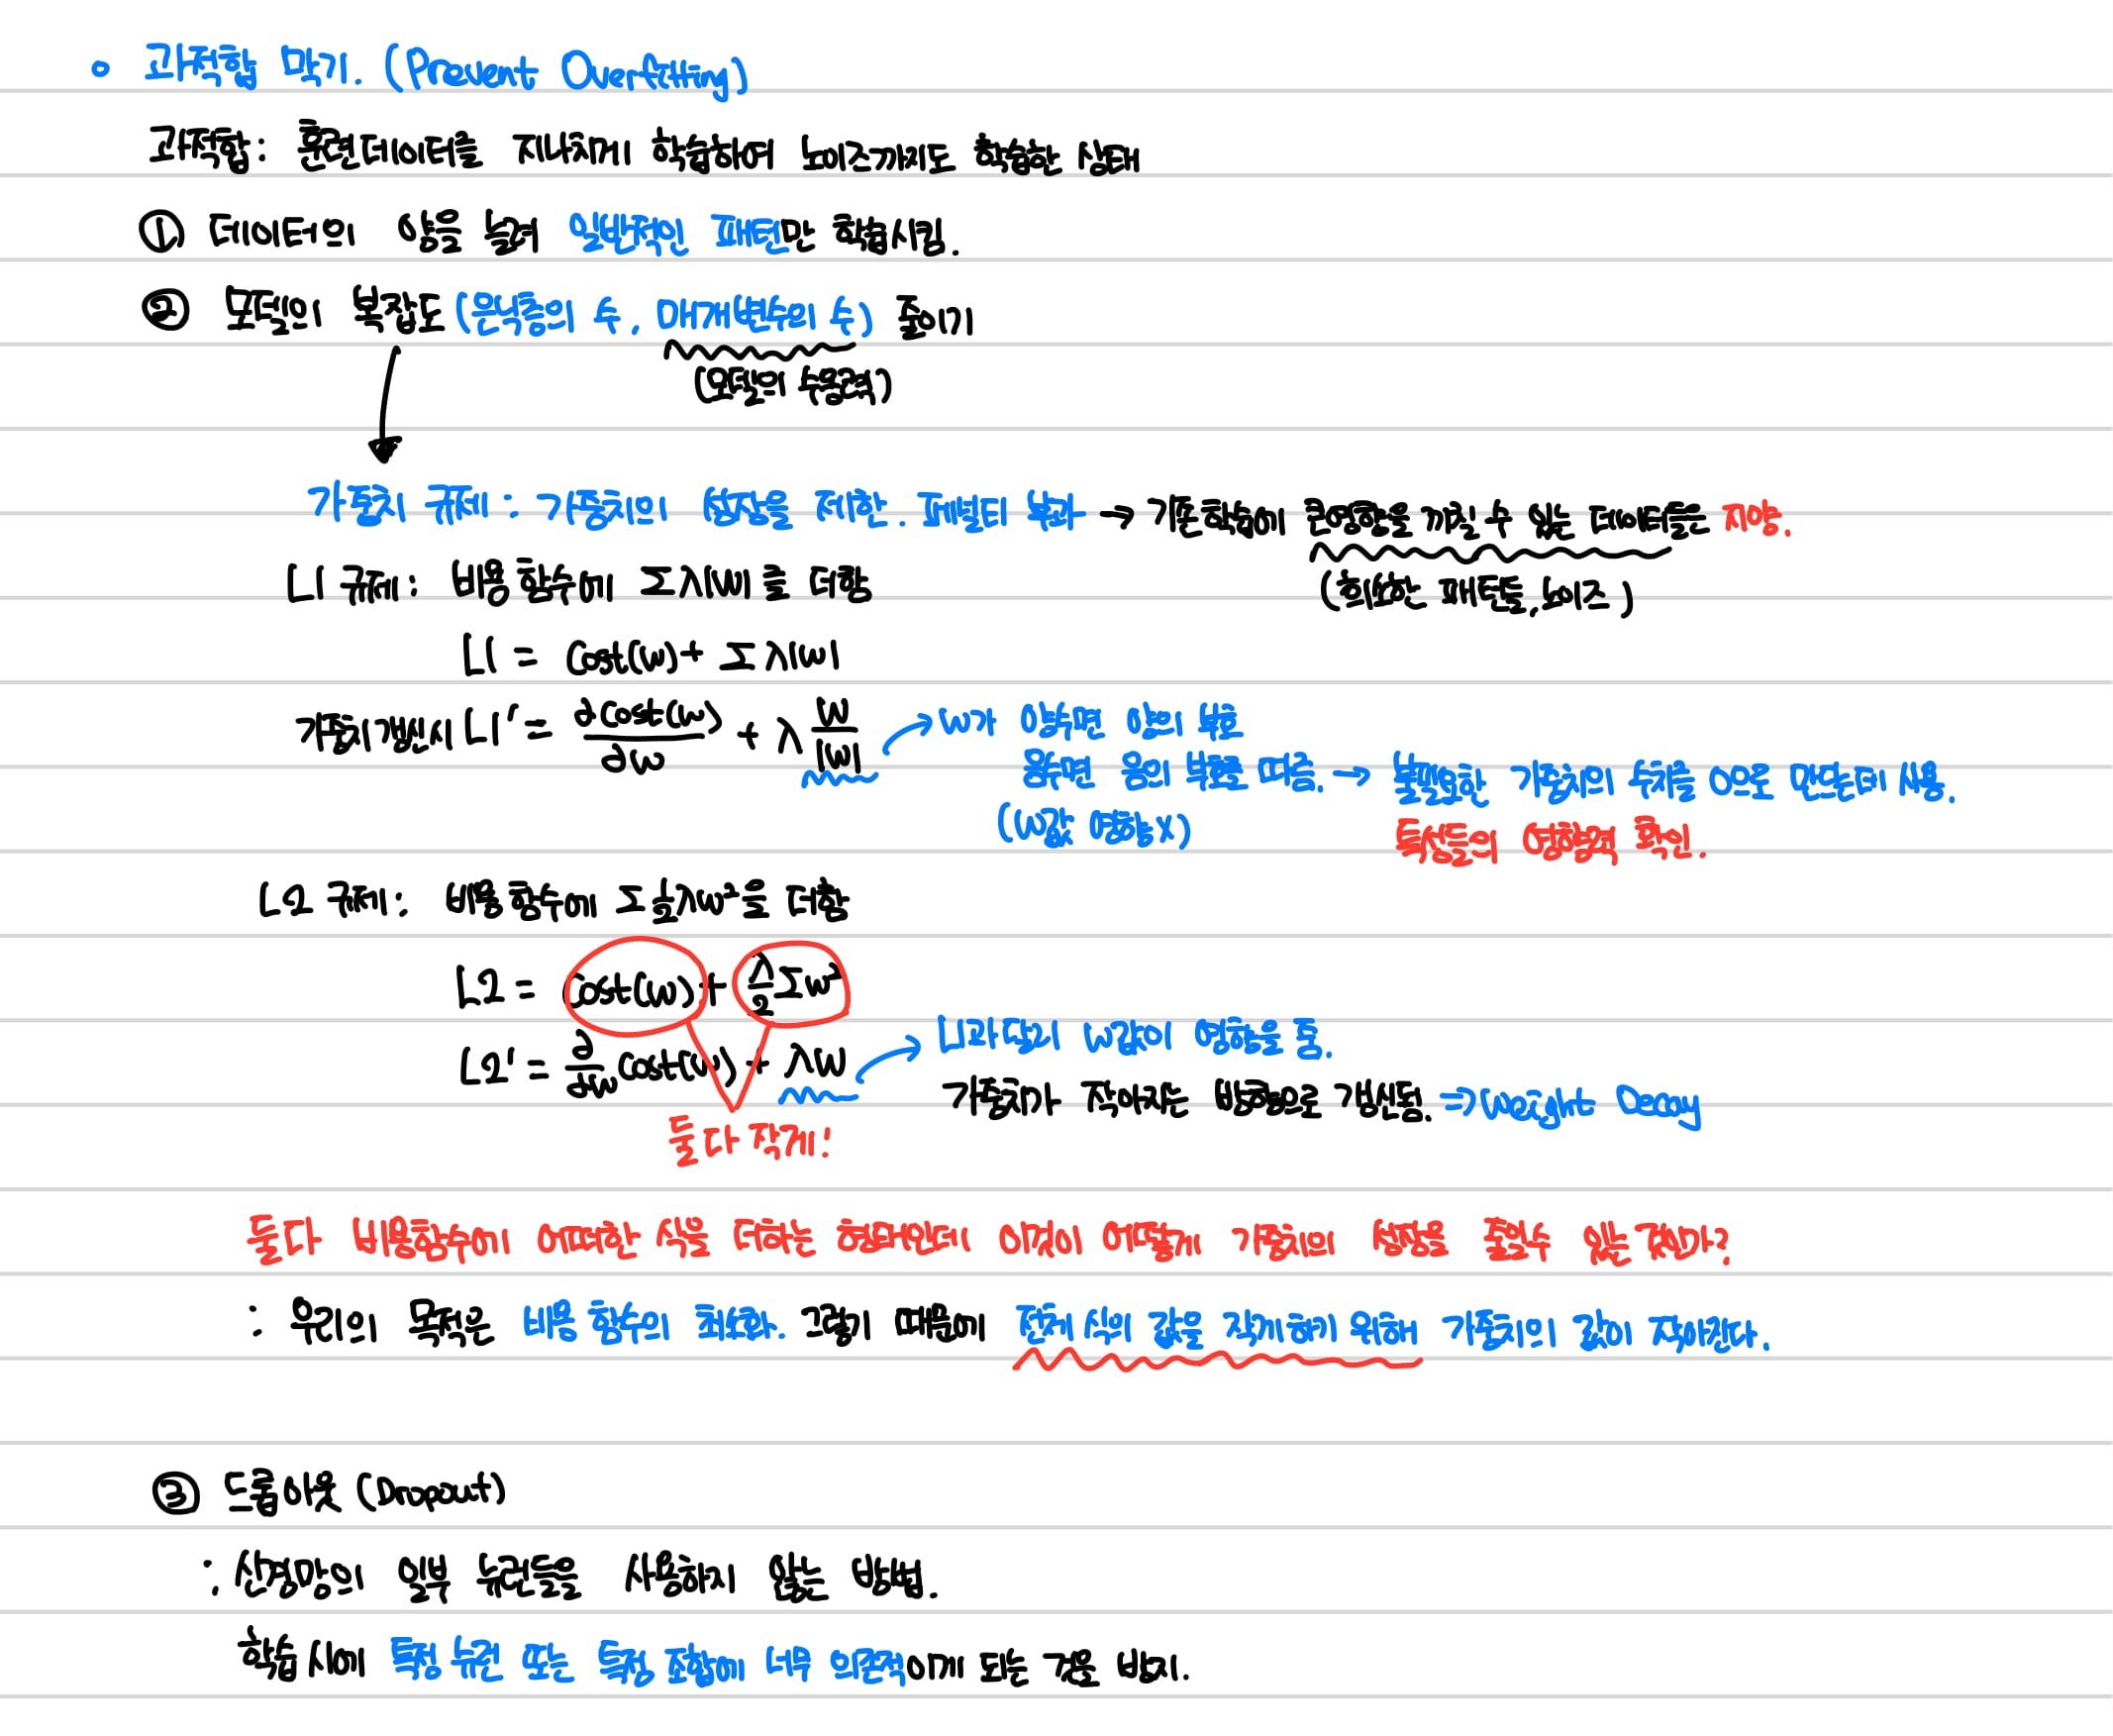 ○ 과적합 막기. (Prevent Overfitting)
과적합: 훈련데이터를 지나치게 학습하여 노이즈까지도 학습한 상태
① 데이터의 양을 늘려 일반적인 패턴만 학습시킴.
② 모델의 복잡도 (은닉층의 수, 매개변수의 수) 줄이기
(모델의 수용력)
가중치 규제 : 가중치의 성장을 제한. 페널티 부과 → 기존학습에 큰영향을 끼칠 수 있는 데이터들은 지양.
(희소한 패턴들, 노이즈)
L1 규제: 비용함수에 Σλ|W|를 더함
L1 = Cost(W) + Σ λ|W|
가중치갱신시 L1' = ∂Cost(w)/∂w + λ W/|W| → W가 양수면 양의 부호
음수면 음의 부호를 띠름. → 불필요한 가중치의 수치를 0으로 만드는데 사용.
(W값 영향X) 특성들의 영향력 확인.
L2 규제: 비용함수에 Σ½λw²을 더함
L2 = Cost(W) + λ/2 Σw²
L2' = ∂/∂w Cost(W) + λW → L1과 달리 W값이 영향을 줌.
가중치가 작아지는 방향으로 갱신됨. ⇒ Weight Decay
둘다 작게!
둘다 비용함수에 어떠한 식을 더하는 형태인데 이것이 어떻게 가중치의 성장을 줄일수 있는 것인가?
: 우리의 목적은 비용 함수의 최소화. 그렇기 때문에 전체 식의 값을 작게하기 위해 가중치의 값이 작아진다.
③ 드롭아웃 (Dropout)
: 신경망의 일부 뉴런들을 사용하지 않는 방법.
학습 시에 특정 뉴런 또는 특정 조합에 너무 의존적이게 되는 것을 방지.